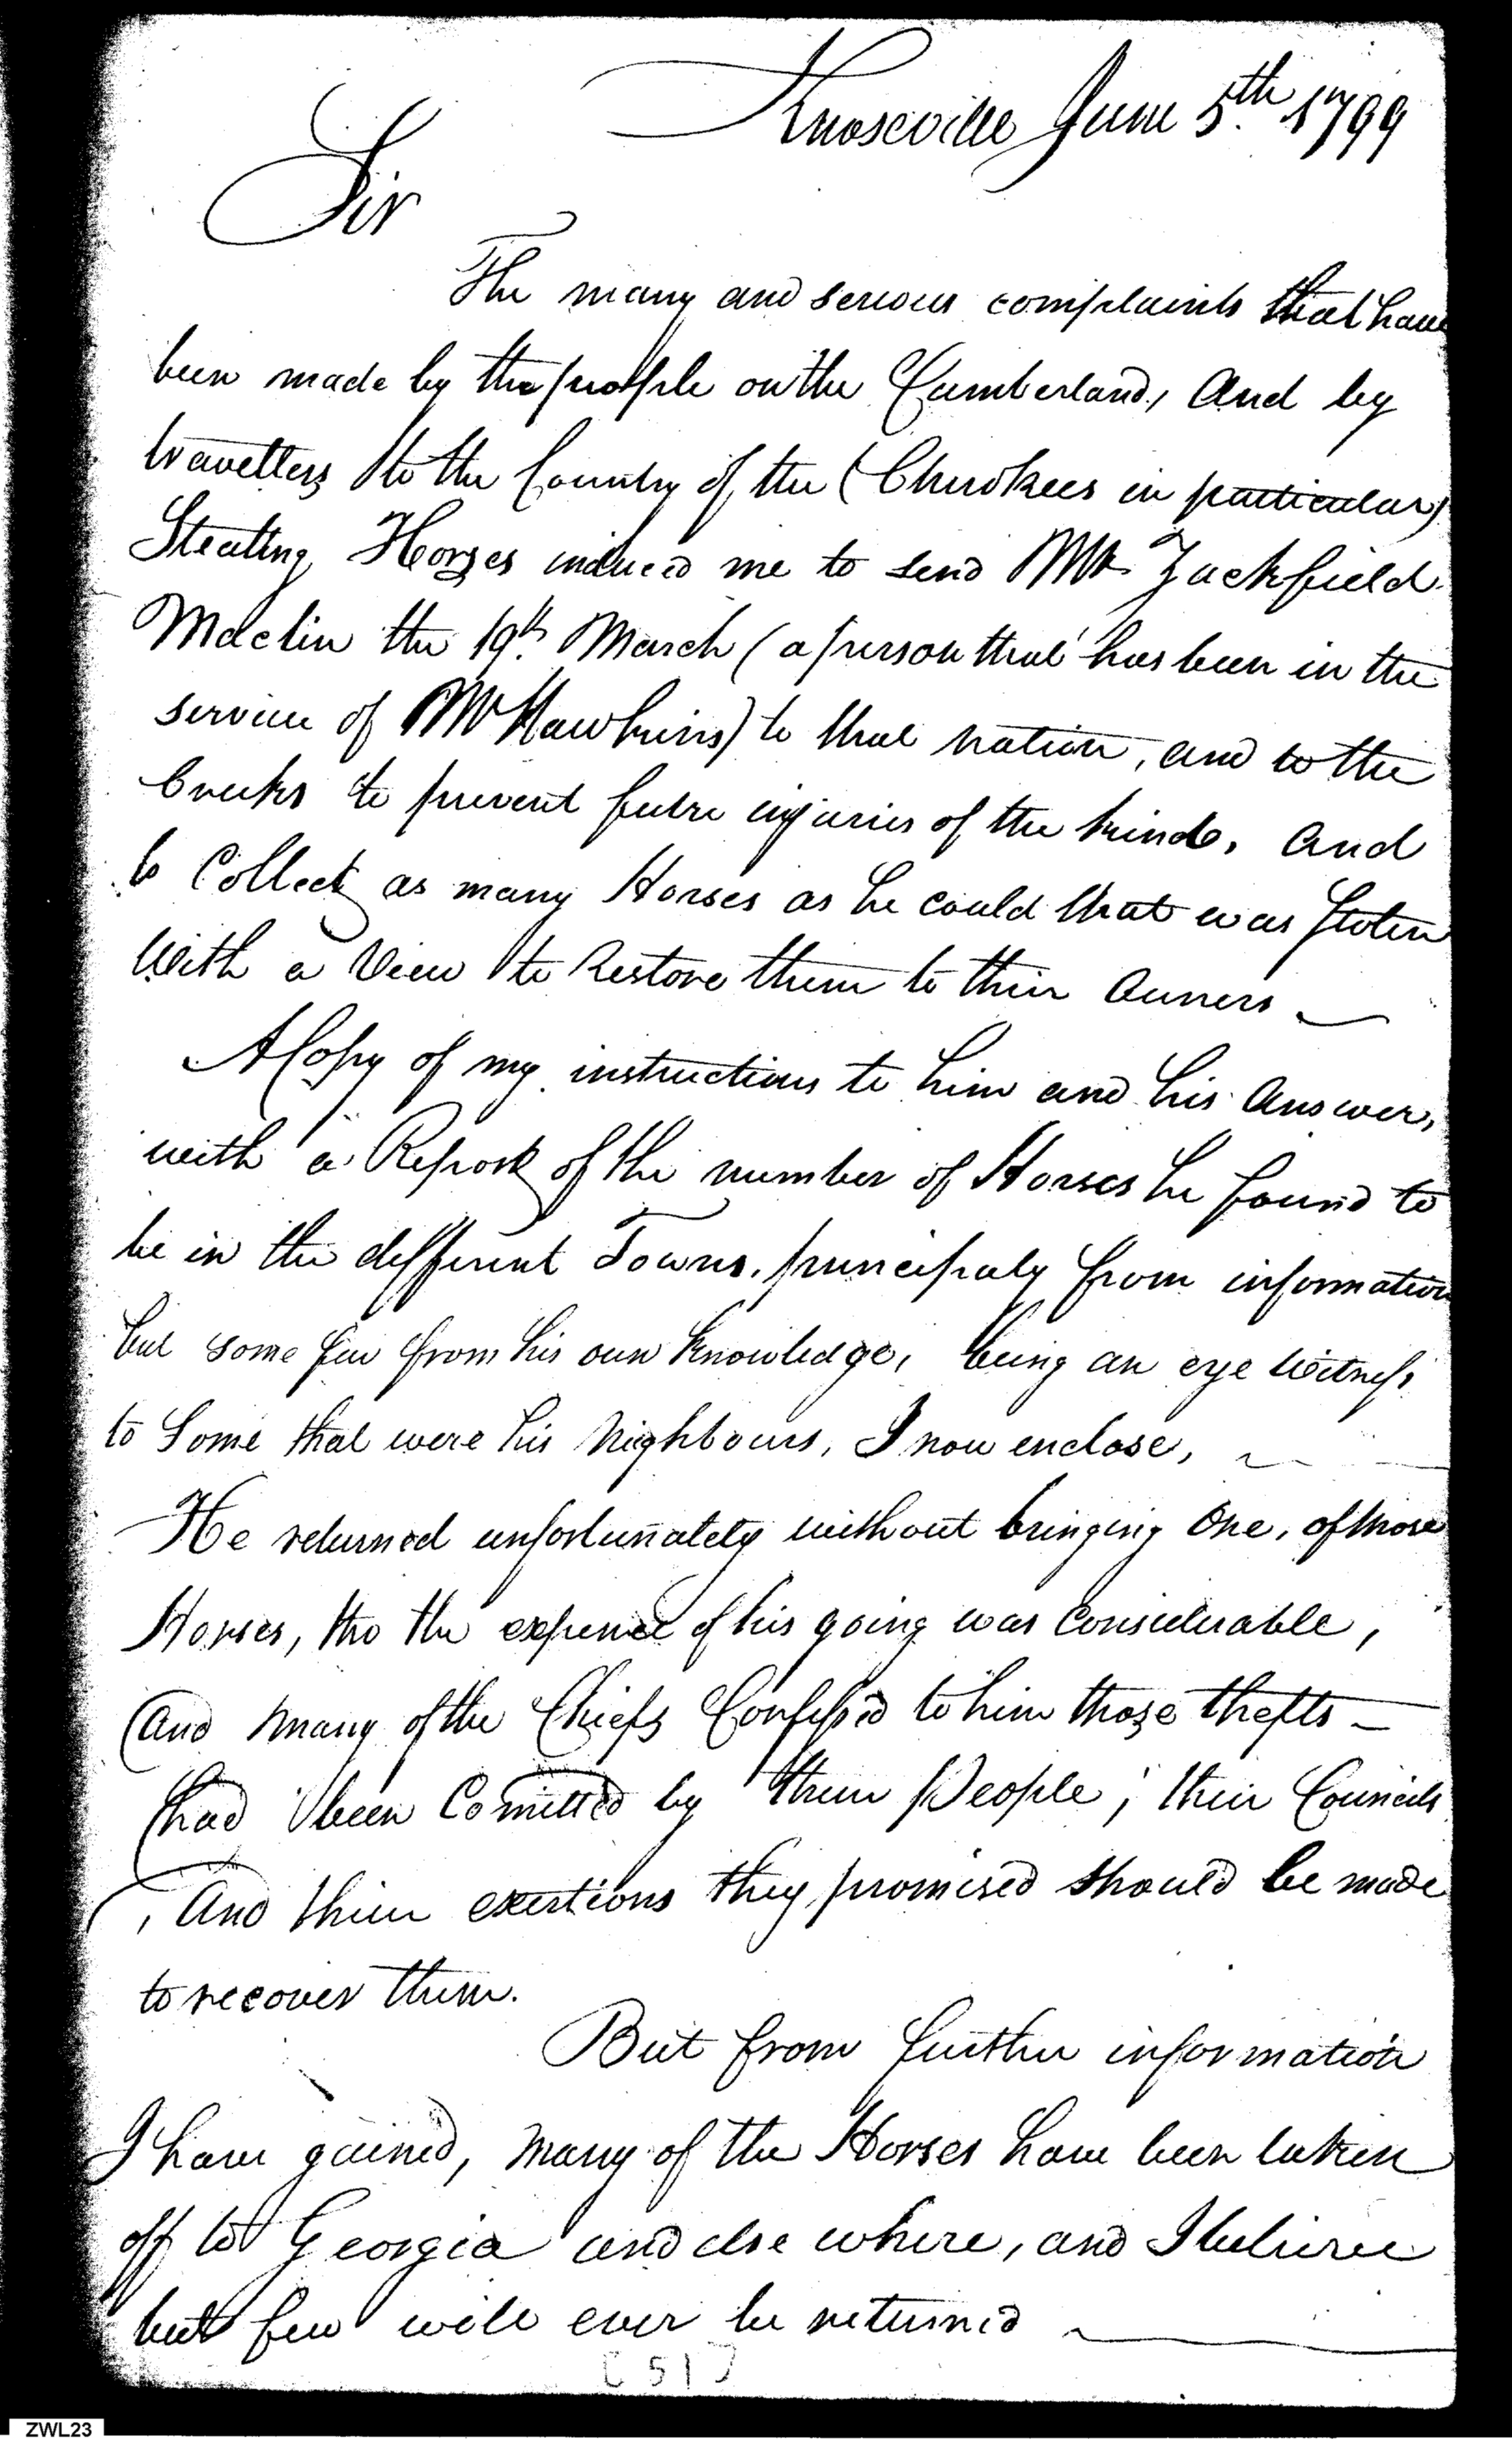 Knoxville June 5th. 1799
Sir
The many and serious complaints that have
been made by the people on the Cumberland, and by
travellers to the Country of the (Cherokees in particular)
Stealing Horses induced me to send Mr. Zackfield
Maclin the 19th. March (a person that has been in the
service of Mr Hawkins) to that nation, and to the
Creeks to prevent futre injuries of the kinde, and
to Collect as many Horses as he could that was Stolen
With a View to Restore them to their Owners
A Copy of my instructions to him and his Answer,
with a Report of the number of Horses he found to
be in the different Towns, principaly from information
but some few from his own knowledge, being an eye witness
to Some that were his Nighbours, I now enclose,
He returned unfortunately without bringing One, of those
Horses, tho the expence of his going was Considerable,
(and many of the Chiefs Confess'd to him those thefts —
had been Comitted by their People; their Councils
, And their exertions they promised should be made
to recover them.
But from further information
I have gained, many of the Horses have been taken
off to Georgia and else where, and I believe
but few will ever be returned
C 517
ZWL23